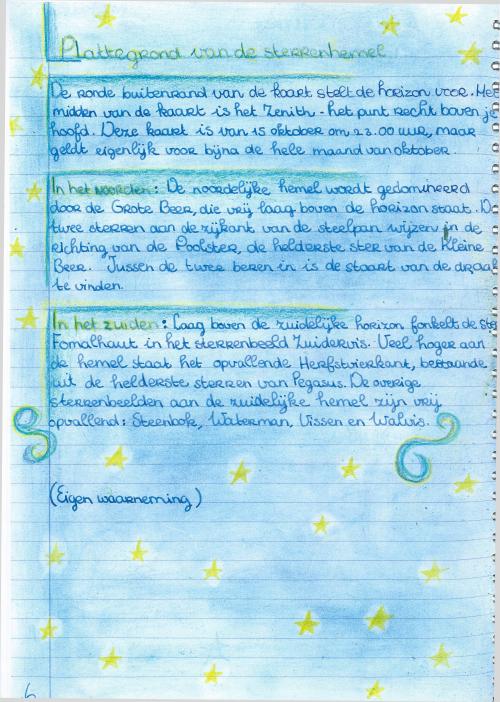 Plattegrond van de sterrenhemel
De ronde buitenrand van de kaart stelt de horizon voor. He
midden van de kaart is het Zenith - het punt recht boven je
hoofd. Deze kaart is van 15 oktober om 22.00 uur, maar
geldt eigenlijk voor bijna de hele maand van oktober.
In het noorden: De noordelijke hemel wordt gedomineerd
door de Grote Beer, die vrij laag boven de horizon staat. D
twee sterren aan de zijkant van de steelpan wijzen in de
richting van de Poolster, de helderste ster van de Kleine
Beer. Tussen de twee beren in is de staart van de draak
te vinden.
In het zuiden: Laag boven de zuidelijke horizon fonkelt de ste
Fomalhaut in het sterrenbeeld Zuidervis. Veel hoger aan
de hemel staat het opvallende Herfstvierkant, bestaande
uit de helderste sterren van Pegasus. De overige
sterrenbeelden aan de zuidelijke hemel zijn vrij
opvallend: Steenbok, Waterman, Vissen en Walvis.
(Eigen waarneming)
6